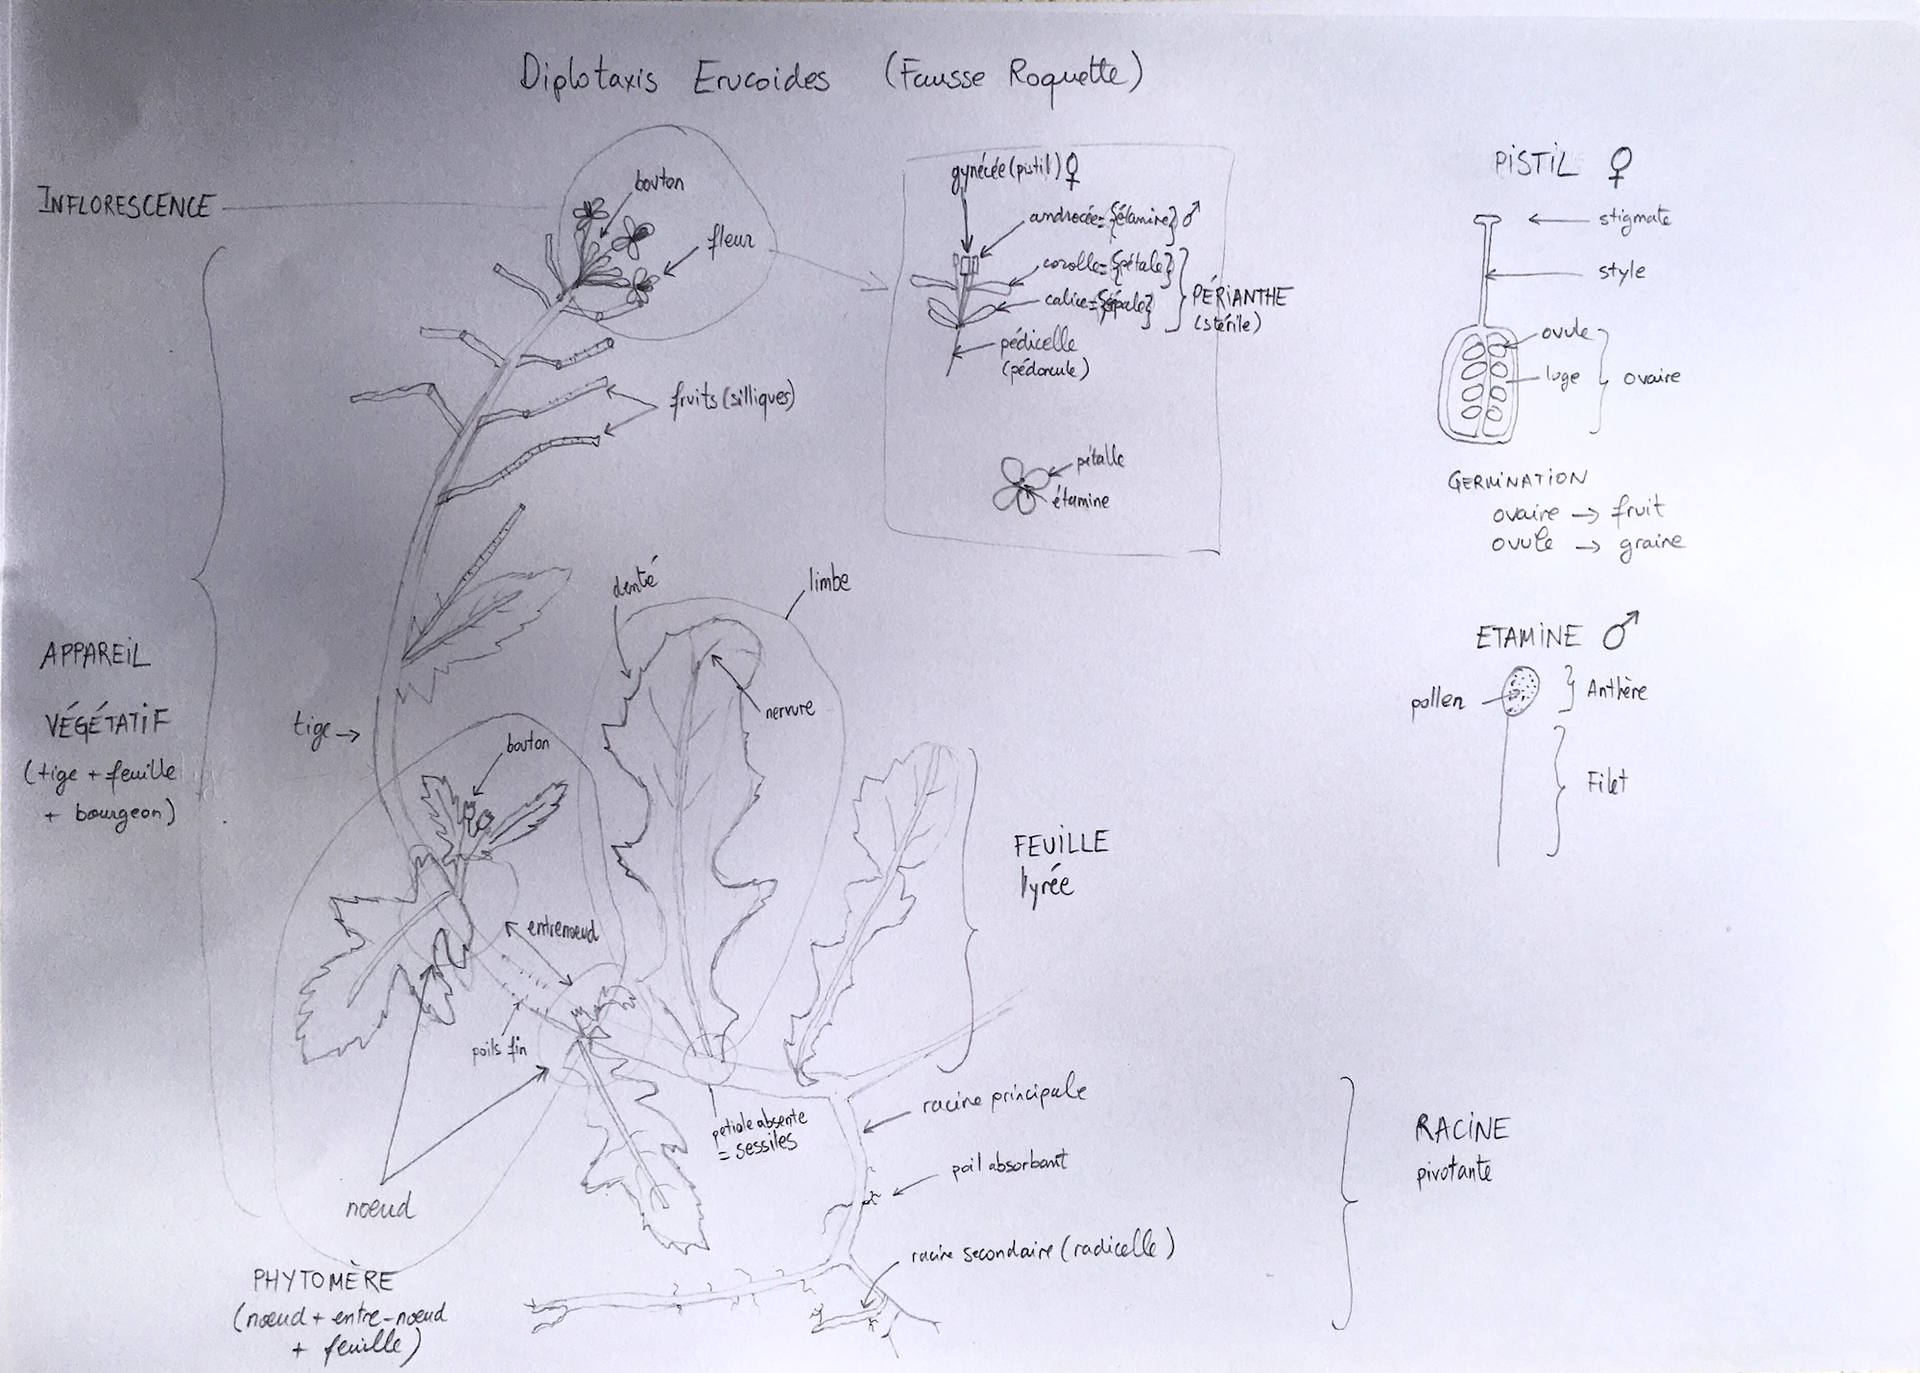 Diplotaxis Erucoides (Fausse Roquette)
INFLORESCENCE
bouton
fleur
fruits (silliques)
gynécée (pistil) ♀
androcée = {étamine} ♂
corolle = {pétale}
calice = {sépale}
PÉRIANTHE
(stérile)
pédicelle
(pédoncule)
pétalle
étamine
PISTIL ♀
stigmate
style
ovule
loge
ovaire
GERMINATION
ovaire → fruit
ovule → graine
ETAMINE ♂
pollen
Anthère
Filet
APPAREIL
VÉGÉTATIF
(tige + feuille
+ bourgeon)
tige →
denté
limbe
nervure
bouton
entrenoeud
poils fin
noeud
petiole absente
= sessiles
FEUILLE
lyrée
racine principale
poil absorbant
racine secondaire (radicelle)
RACINE
pivotante
PHYTOMÈRE
(nœud + entre-nœud
+ feuille)